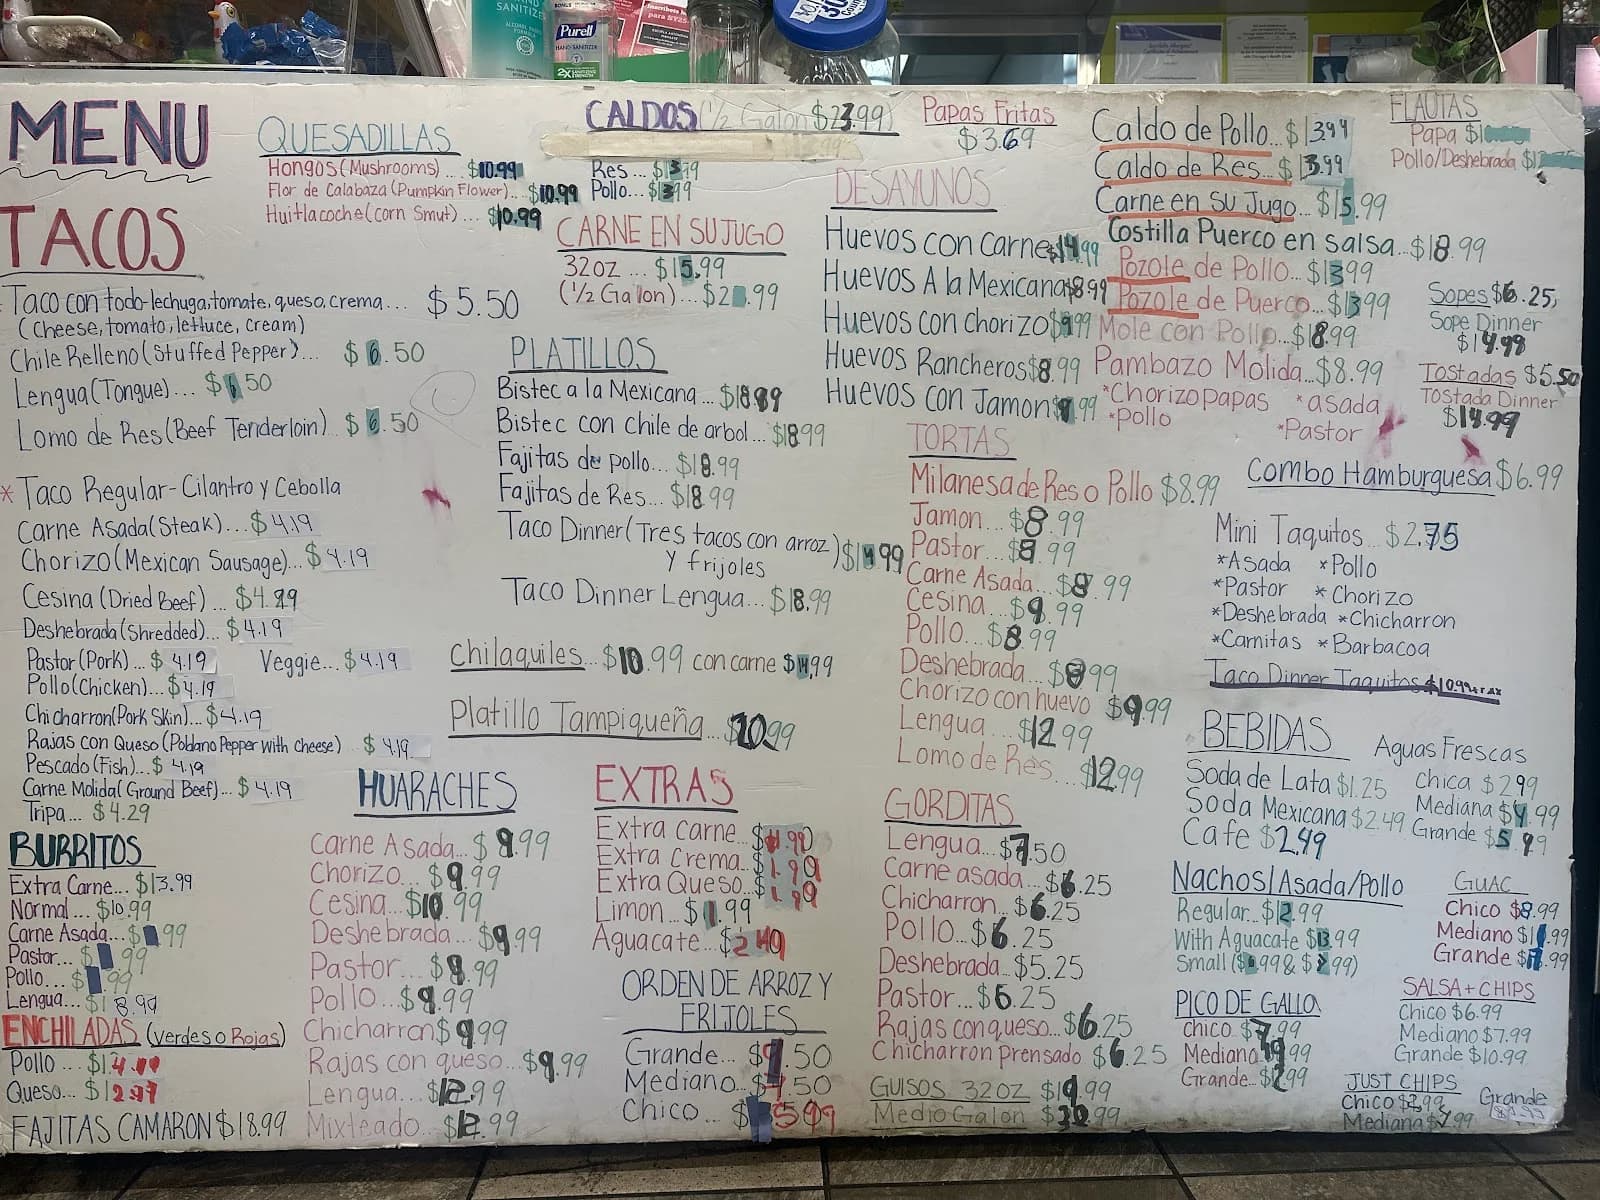 HAND
SANITIZER
Purell
HAND SANITIZER
2X
MENU
TACOS
Taco con todo-lechuga,tomate, queso, crema... $5.50
(cheese, tomato, lettuce, cream)
Chile Relleno (Stuffed Pepper)... $6.50
Lengua (Tongue)... $6.50
Lomo de Res (Beef Tenderloin) $6.50
* Taco Regular-Cilantro y Cebolla
Carne Asada (Steak)... $4.19
Chorizo (Mexican Sausage)... $4.19
Cesina (Dried Beef)... $4.29
Deshebrada (Shredded)... $4.19
Pastor (Pork)... $4.19 Veggie... $4.19
Pollo (Chicken)... $4.19
Chicharron (Pork Skin)... $4.19
Rajas con Queso (Poblano Pepper with cheese) $4.19
Pescado (Fish)... $4.19
Carne Molida (Ground Beef)... $4.19
Tripa... $4.29
BURRITOS
Extra Carne... $13.99
Normal... $10.99
Carne Asada... $ .99
Pastor... $ .99
Pollo... $ .99
Lengua... $18.99
ENCHILADAS (verdes o Rojas)
Pollo...
Queso...
FAJITAS CAMARON $18.99
QUESADILLAS
Hongos (Mushrooms)... $10.99
Flor de Calabaza (Pumpkin Flower)... $10.99
Huitlacoche (corn Smut)... $10.99
CALDOS (1/2 Galon $23.99)
Res... $13.99
Pollo... $13.99
CARNE EN SU JUGO
32oz... $15.99
(1/2 Galon)...
PLATILLOS
Bistec a la Mexicana... $18.99
Bistec con chile de arbol... $18.99
Fajitas de pollo... $18.99
Fajitas de Res... $18.99
Taco Dinner (Tres tacos con arroz
y frijoles) $14.99
Taco Dinner Lengua... $18.99
Chilaquiles... $10.99 con carne $14.99
Platillo Tampiqueña... $20.99
HUARACHES
Carne Asada... $9.99
Chorizo... $9.99
Cesina... $10.99
Deshebrada... $9.99
Pastor... $9.99
Pollo... $9.99
Chicharron $9.99
Rajas con queso... $9.99
Lengua... $12.99
Mixteado... $12.99
EXTRAS
Extra Carne...
Extra Crema...
Extra Queso...
Limon... $1.99
Aguacate...
ORDEN DE ARROZ Y
FRIJOLES
Grande...
Mediano...
Chico... $5.99
Papas Fritas
$3.69
DESAYUNOS
Huevos con Carne $14.99
Huevos A la Mexicana $8.99
Huevos con chorizo $9.99
Huevos Rancheros $8.99
Huevos con Jamon $9.99
TORTAS
Milanesa de Res o Pollo $8.99
Jamon... $8.99
Pastor... $8.99
Carne Asada... $8.99
Cesina... $9.99
Pollo... $8.99
Deshebrada... $8.99
Chorizo con huevo $9.99
Lengua... $12.99
Lomo de Res... $12.99
GORDITAS
Lengua... $7.50
Carne asada... $6.25
Chicharron... $6.25
Pollo... $6.25
Deshebrada... $5.25
Pastor... $6.25
Rajas con queso... $6.25
Chicharron prensado $6.25
GUISOS 32oz $19.99
Medio Galon
Caldo de Pollo... $13.99
Caldo de Res... $13.99
Carne en Su Jugo... $15.99
Costilla Puerco en salsa... $18.99
Pozole de Pollo... $13.99
Pozole de Puerco... $13.99
Mole con Pollo... $18.99
Pambazo Molida... $8.99
*Chorizo papas *asada
*Pollo *Pastor
FLAUTAS
Papa
Pollo/Deshebrada
Sopes $6.25
Sope Dinner
$14.99
Tostadas $5.50
Tostada Dinner
$14.99
Combo Hamburguesa $6.99
Mini Taquitos... $2.75
*Asada *Pollo
*Pastor *Chorizo
*Deshebrada *Chicharron
*Carnitas *Barbacoa
Taco Dinner Taquitos $10.99+tax
BEBIDAS
Soda de Lata $1.25
Soda Mexicana $2.49
Cafe $2.49
Aguas Frescas
Chica $2.99
Mediana $4.99
Grande $5.99
Nachos/Asada/Pollo
Regular... $12.99
With Aguacate $13.99
Small
PICO DE GALLO
Chico $7.99
Mediano
Grande...
GUAC
Chico $8.99
Mediano
Grande
SALSA + CHIPS
Chico $6.99
Mediano $7.99
Grande $10.99
JUST CHIPS
Chico
Mediana
Grande